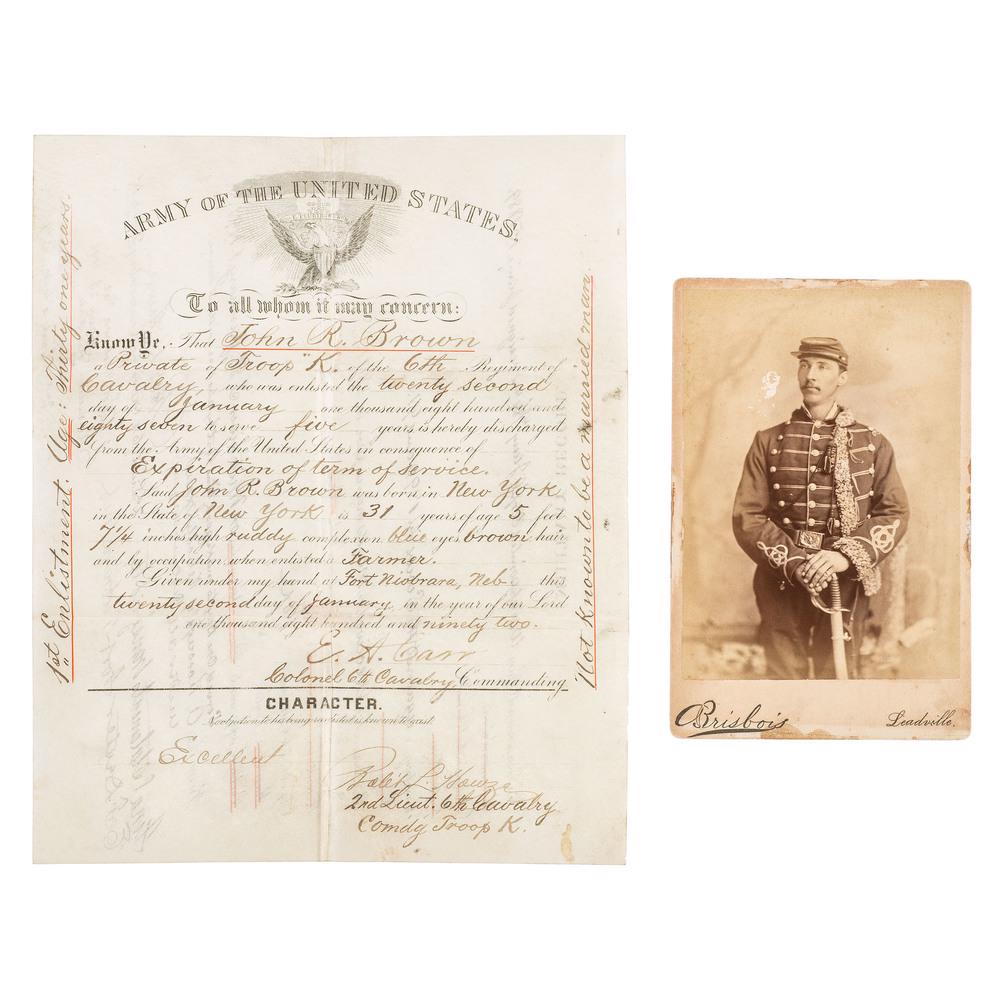 ARMY OF THE UNITED STATES.
To all whom it may concern:
Know Ye, That John R. Brown
a Private of Troop "K" of the 6th Regiment of
Cavalry, who was enlisted the twenty second
day of January one thousand eight hundred and
eighty seven to serve five years is hereby discharged
from the Army of the United States in consequence of
Expiration of term of service.
Said John R. Brown was born in New York
in the State of New York is 31 years of age 5 feet
7 1/4 inches high ruddy complexion blue eyes brown hair
and by occupation when enlisted a Farmer.
Given under my hand at Fort Niobrara, Neb. this
twenty second day of January, in the year of our Lord
one thousand eight hundred and ninety two.
E. A. Carr
Colonel 6th Cavalry, Commanding
CHARACTER.
No objection to his being re-enlisted is known to exist.
Excellent
Rob't L. Howze
2nd Lieut. 6th Cavalry
Comdg Troop K.
1st Enlistment. Age: Thirty one years.
Not known to be a married man.
Brisbois
Leadville.